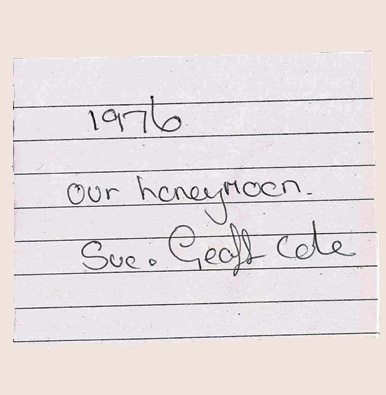 1976
Our honeymoon.
Sue. Geoff Cole